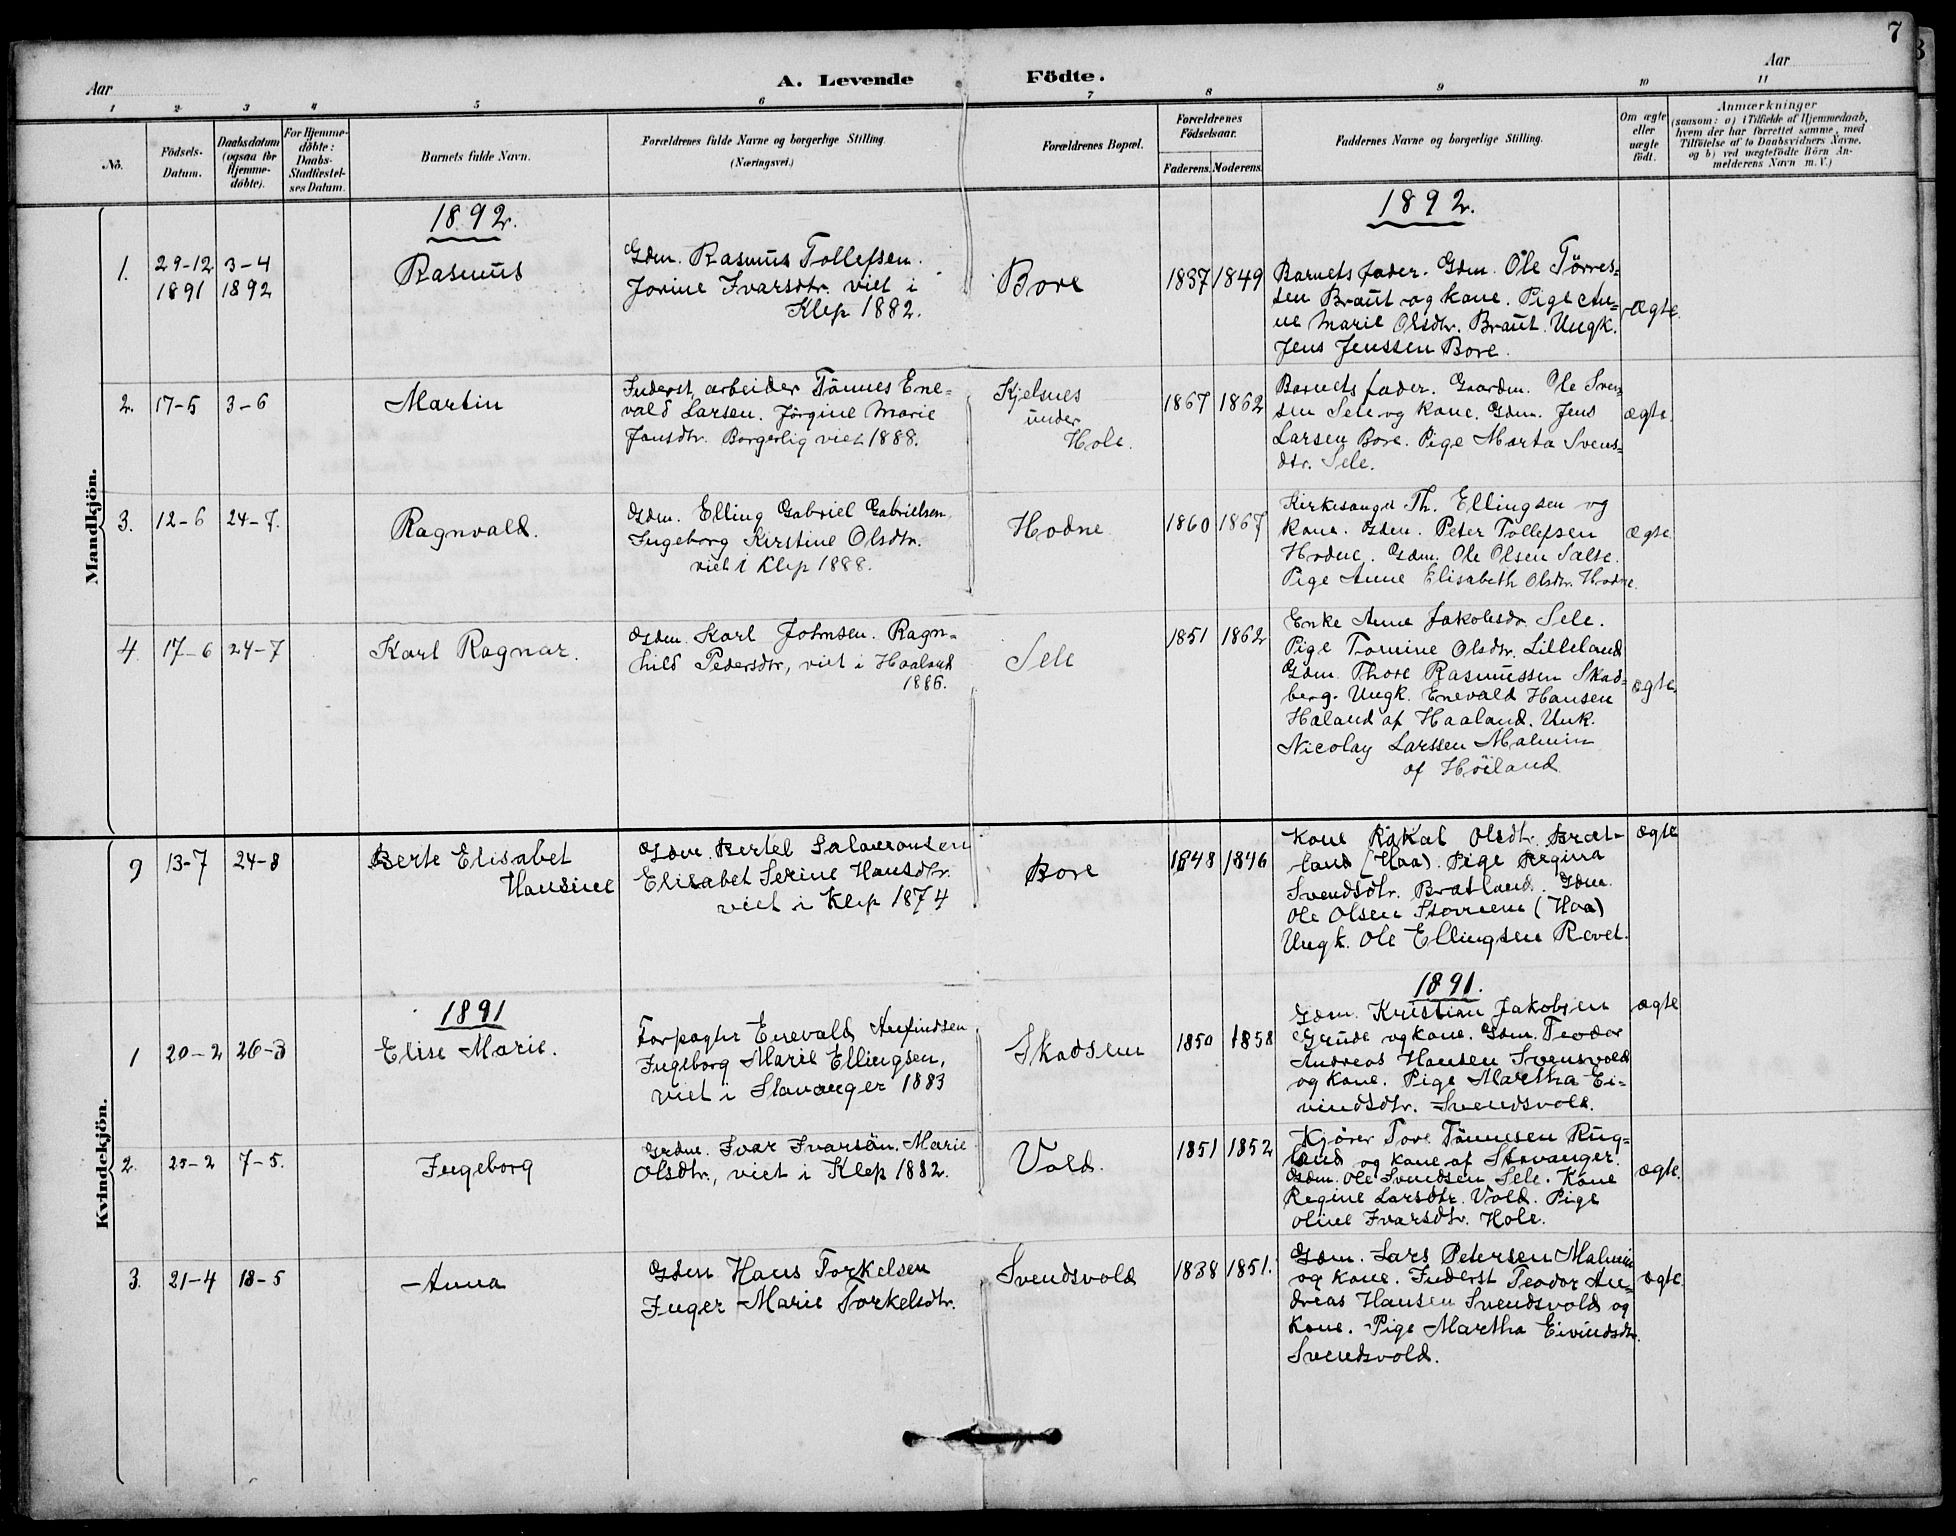 7
Aar
A. Levende Födte.
Aar
1 2 3 4 5 6 7 8 9 10 11
No.
Födsels-
Datum.
Daabsdatum
(ogsaa for
Hjemme-
döbte).
For Hjemme-
döbte:
Daabs-
Stadfæstel-
ses Datum.
Barnets fulde Navn.
Forældrenes fulde Navne og borgerlige Stilling
(Næringsvei.)
Forældrenes Bopæl.
Forældrenes
Födselsaar.
Faderens. Moderens.
Faddernes Navne og borgerlige Stilling.
Om ægte
eller
uægte
födt.
Anmærkninger
(saasom: a) i Tilfælde af Hjemmedaab,
hvem der har forrettet samme, med
Tilföielse af to Daabsvidners Navne,
og b) ved uægtefödte Börn An-
melderens Navn m. V.)
Mandkjön.
1892.
1892.
1.
29-12
1891
3-4
1892
Rasmus
Gdm. Rasmus Tollefsen.
Jorine Ivarsdtr. viet i
Klep 1882.
Bore
1837 1849
Barnets fader. Gdm. Ole Törres=
sen Braut og kone. Pige An=
ne Marie Olsdtr. Braut. Ungk.
Jens Jenssen Bore.
Ægte.
2.
17-5
3-6
Martin
Inderst, arbeider Tönnes Ene-
vald Larsen. Jörgine Marie
Jansdtr. Borgerlig viet 1888.
Kjelsnes
under
Hole.
1867 1862
Barnets fader. Gaardm. Ole Sven
sen Sele og kone. Gdm. Jens
Larsen Bore. Pige Marta Svens=
dtr. Sele.
ægte.
3.
12-6
24-7.
Ragnvald.
Gdm. Elling Gabriel Gabrielsen
Ingeborg Kirstine Olsdtr.
viet i Klep 1888.
Hodne
1860 1867
Kirkesanger Th. Ellingsen og
kone. Gdm. Peter Tollefsen
Hodne. Gdm. Ole Olsen Salte.
Pige Anne Elisabeth Olsdtr. Hodne
ægte.
4.
17-6
24-7
Karl Ragnar.
Gdm. Karl Johnsen. Ragn=
hild Pedersdtr, viet i Haaland
1886.
Sele
1851 1862
Enke Anne Jakobsdr. Sele.
Pige Tomine Olsdtr. Lilleland
Gdm. Thore Rasmussen Skad=
berg. Ungk. Enevald Hansen
Haland af Haaland. Unk.
Nicolay Larssen Malmin
af Höiland
ægte.
Kvindekjön.
9
13-7
24-8
Berte Elisabet
Hansine
Gdm. Bertel Salamonsen
Elisabet Serine Hansdtr.
viet i Klep 1874
Bore
1848 1846
Kone Rakal Olsdtr.
land (Haa). Pige Regina
Svendsdtr. Bratland. Gdm.
Ole Olsen (Haa)
Ungk. Ole Ellingsen Revet.
ægte
1891
1891.
1
20-2
26-3
Elise Marie.
Forpagter Enevald Anfindsen
Ingeborg Marie Ellingsen,
viet i Stavanger 1883
Skadsem
1850 1858
Gdm. Kristian Jakobsen
Grude og kone. Gdm. Teodor
Andreas Hansen Svensvold
og kone. Pige Martha Ei-
vindsdtr. Svendsvold.
ægte
2.
7-5.
Ingeborg
Grdm. Ivar Ivarsön. Marie
Olsdtr., viet i Klep 1882.
Vold.
1851 1852
Kjörer Tore Tönnesen Rug=
land og kone af Stavanger.
Gdm. Ole Svendsen Sele. Kone
Regine Larsdtr. Vold. Pige
Oline Ivarsdtr. Hole.
ægte.
3.
21-4
18-5
Anna
Gdm Hans Torkelsen
Inger Marie Torkelsdtr.
Svendsvold
1838 1851.
Gdm. Lars Petersen Malmin
og kone. Inderst Teodor An=
dreas Hansen Svendsvold og
kone. Pige Martha Eivindsdtr.
Svendsvold.
ægte.